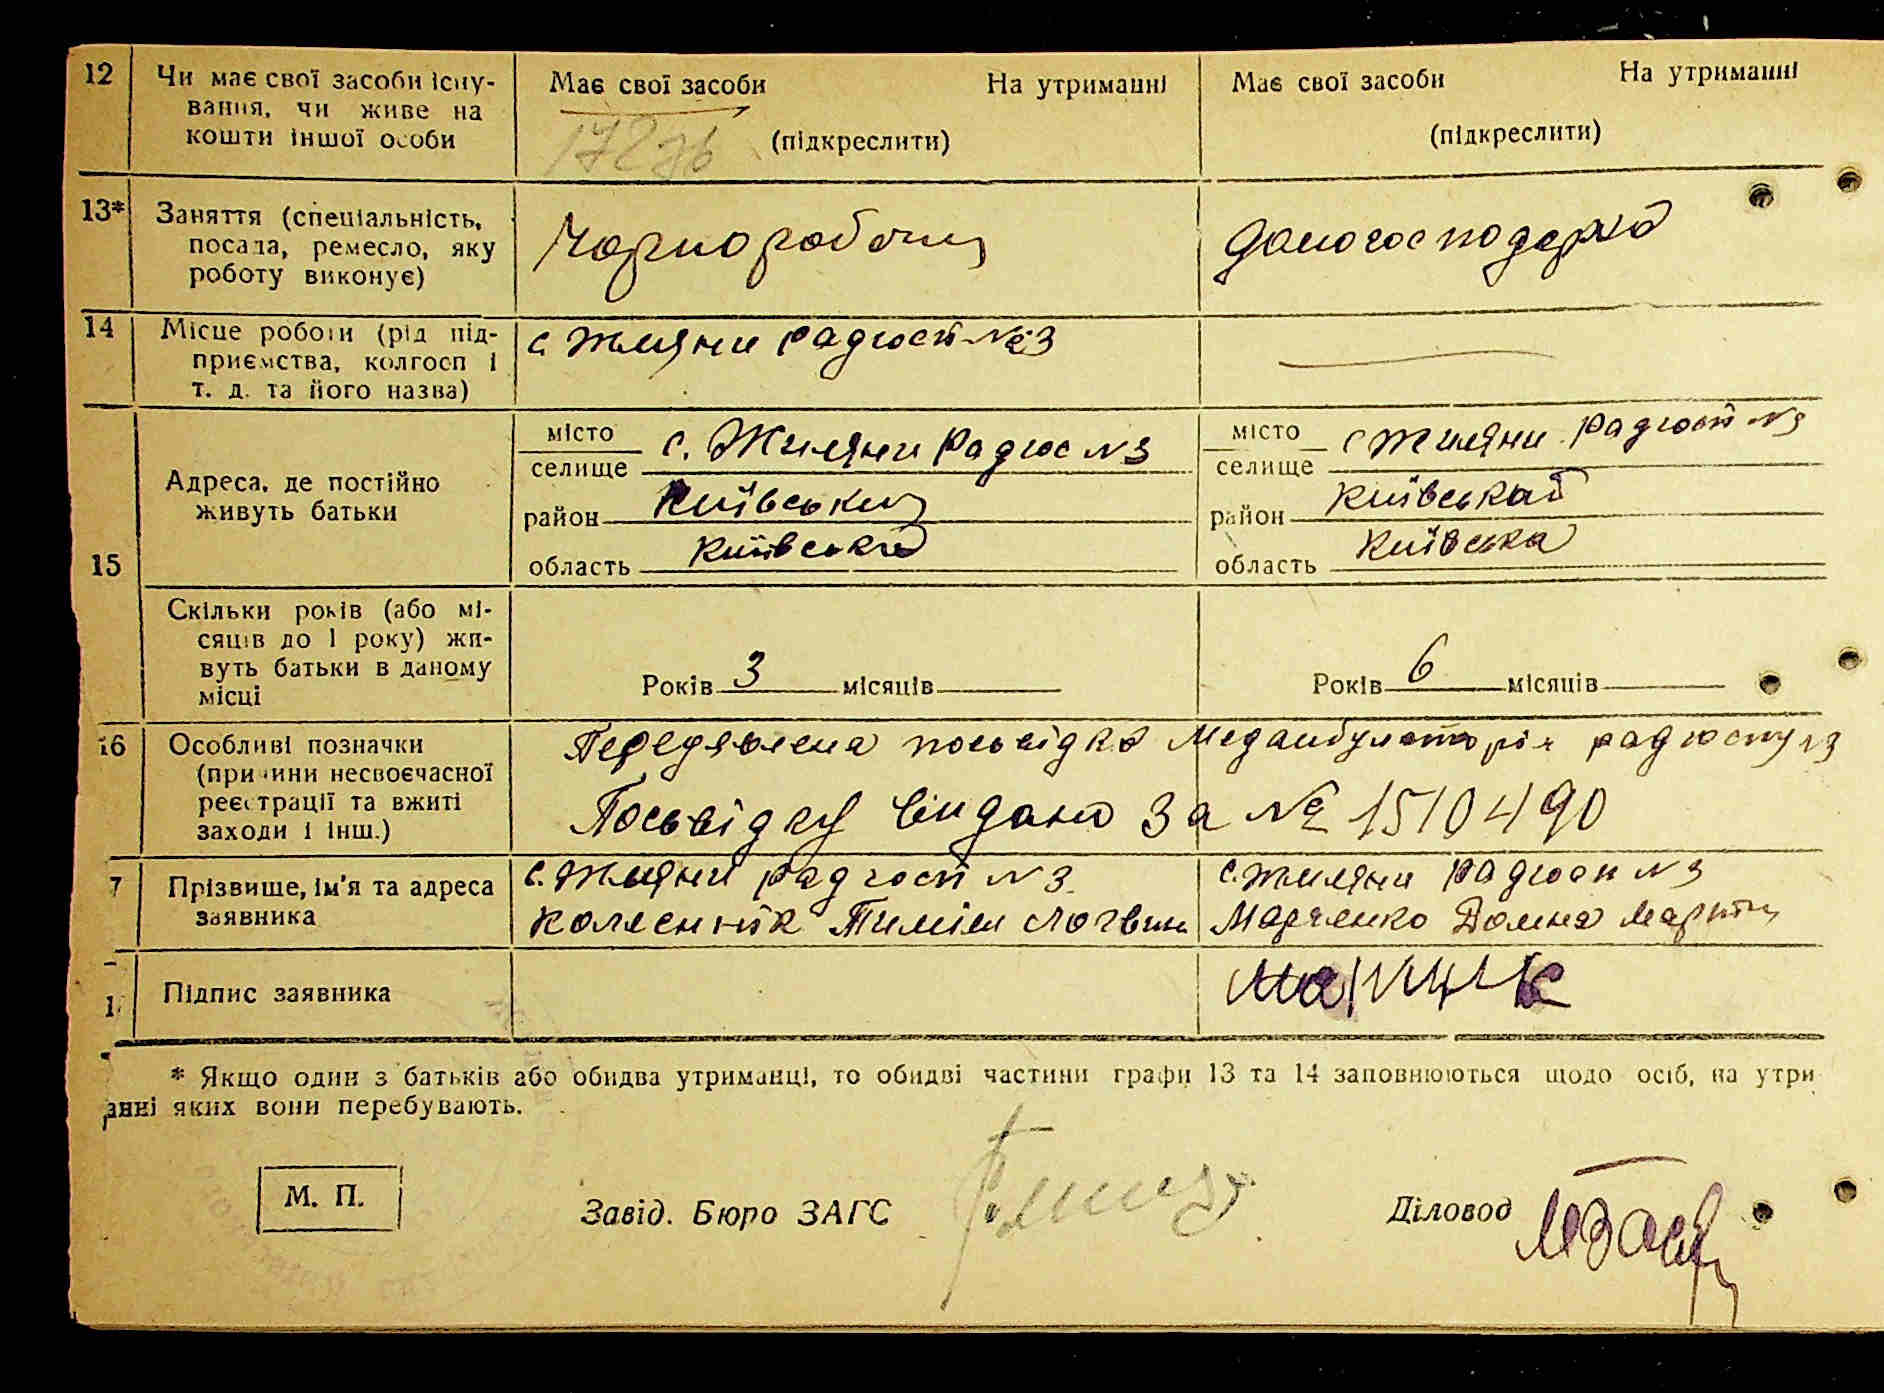 12 Чи має свої засоби існу-
вання, чи живе на
кошти іншої особи
Має свої засоби На утриманні
(підкреслити)
Має свої засоби На утриманні
(підкреслити)
13* Заняття (спеціальність,
посада, ремесло, яку
роботу виконує)
Чорноробочий
домогосподарка
14 Місце роботи (рід під-
приємства, колгосп і
т. д. та його назва)
с Жиляни радгосп №3
15
Адреса, де постійно
живуть батьки
місто
селище с. Жиляни Радгос N3
район Київський
область Київська
місто
селище с Жиляни Радгосп N3
район Київський
область Київська
Скільки років (або мі-
сяців до 1 року) жи-
вуть батьки в даному
місці
Років 3 місяців
Років 6 місяців
16 Особливі позначки
(причини несвоєчасної
реєстрації та вжиті
заходи і інш.)
посьвідка Медамбулаторія радгоспу N3
Посьвідку видано За № 1510490
7 Прізвище, ім'я та адреса
заявника
с. Жиляни радгосп N3
Колесник Тиміш Логвин
с. Жиляни радгосп N3
Марченко Домна Мартин
1 Підпис заявника
* Якщо один з батьків або обидва утриманці, то обидві частини графи 13 та 14 заповнюються щодо осіб, на утри
анні яких вони перебувають.
М. П.
Завід. Бюро ЗАГС
Діловод